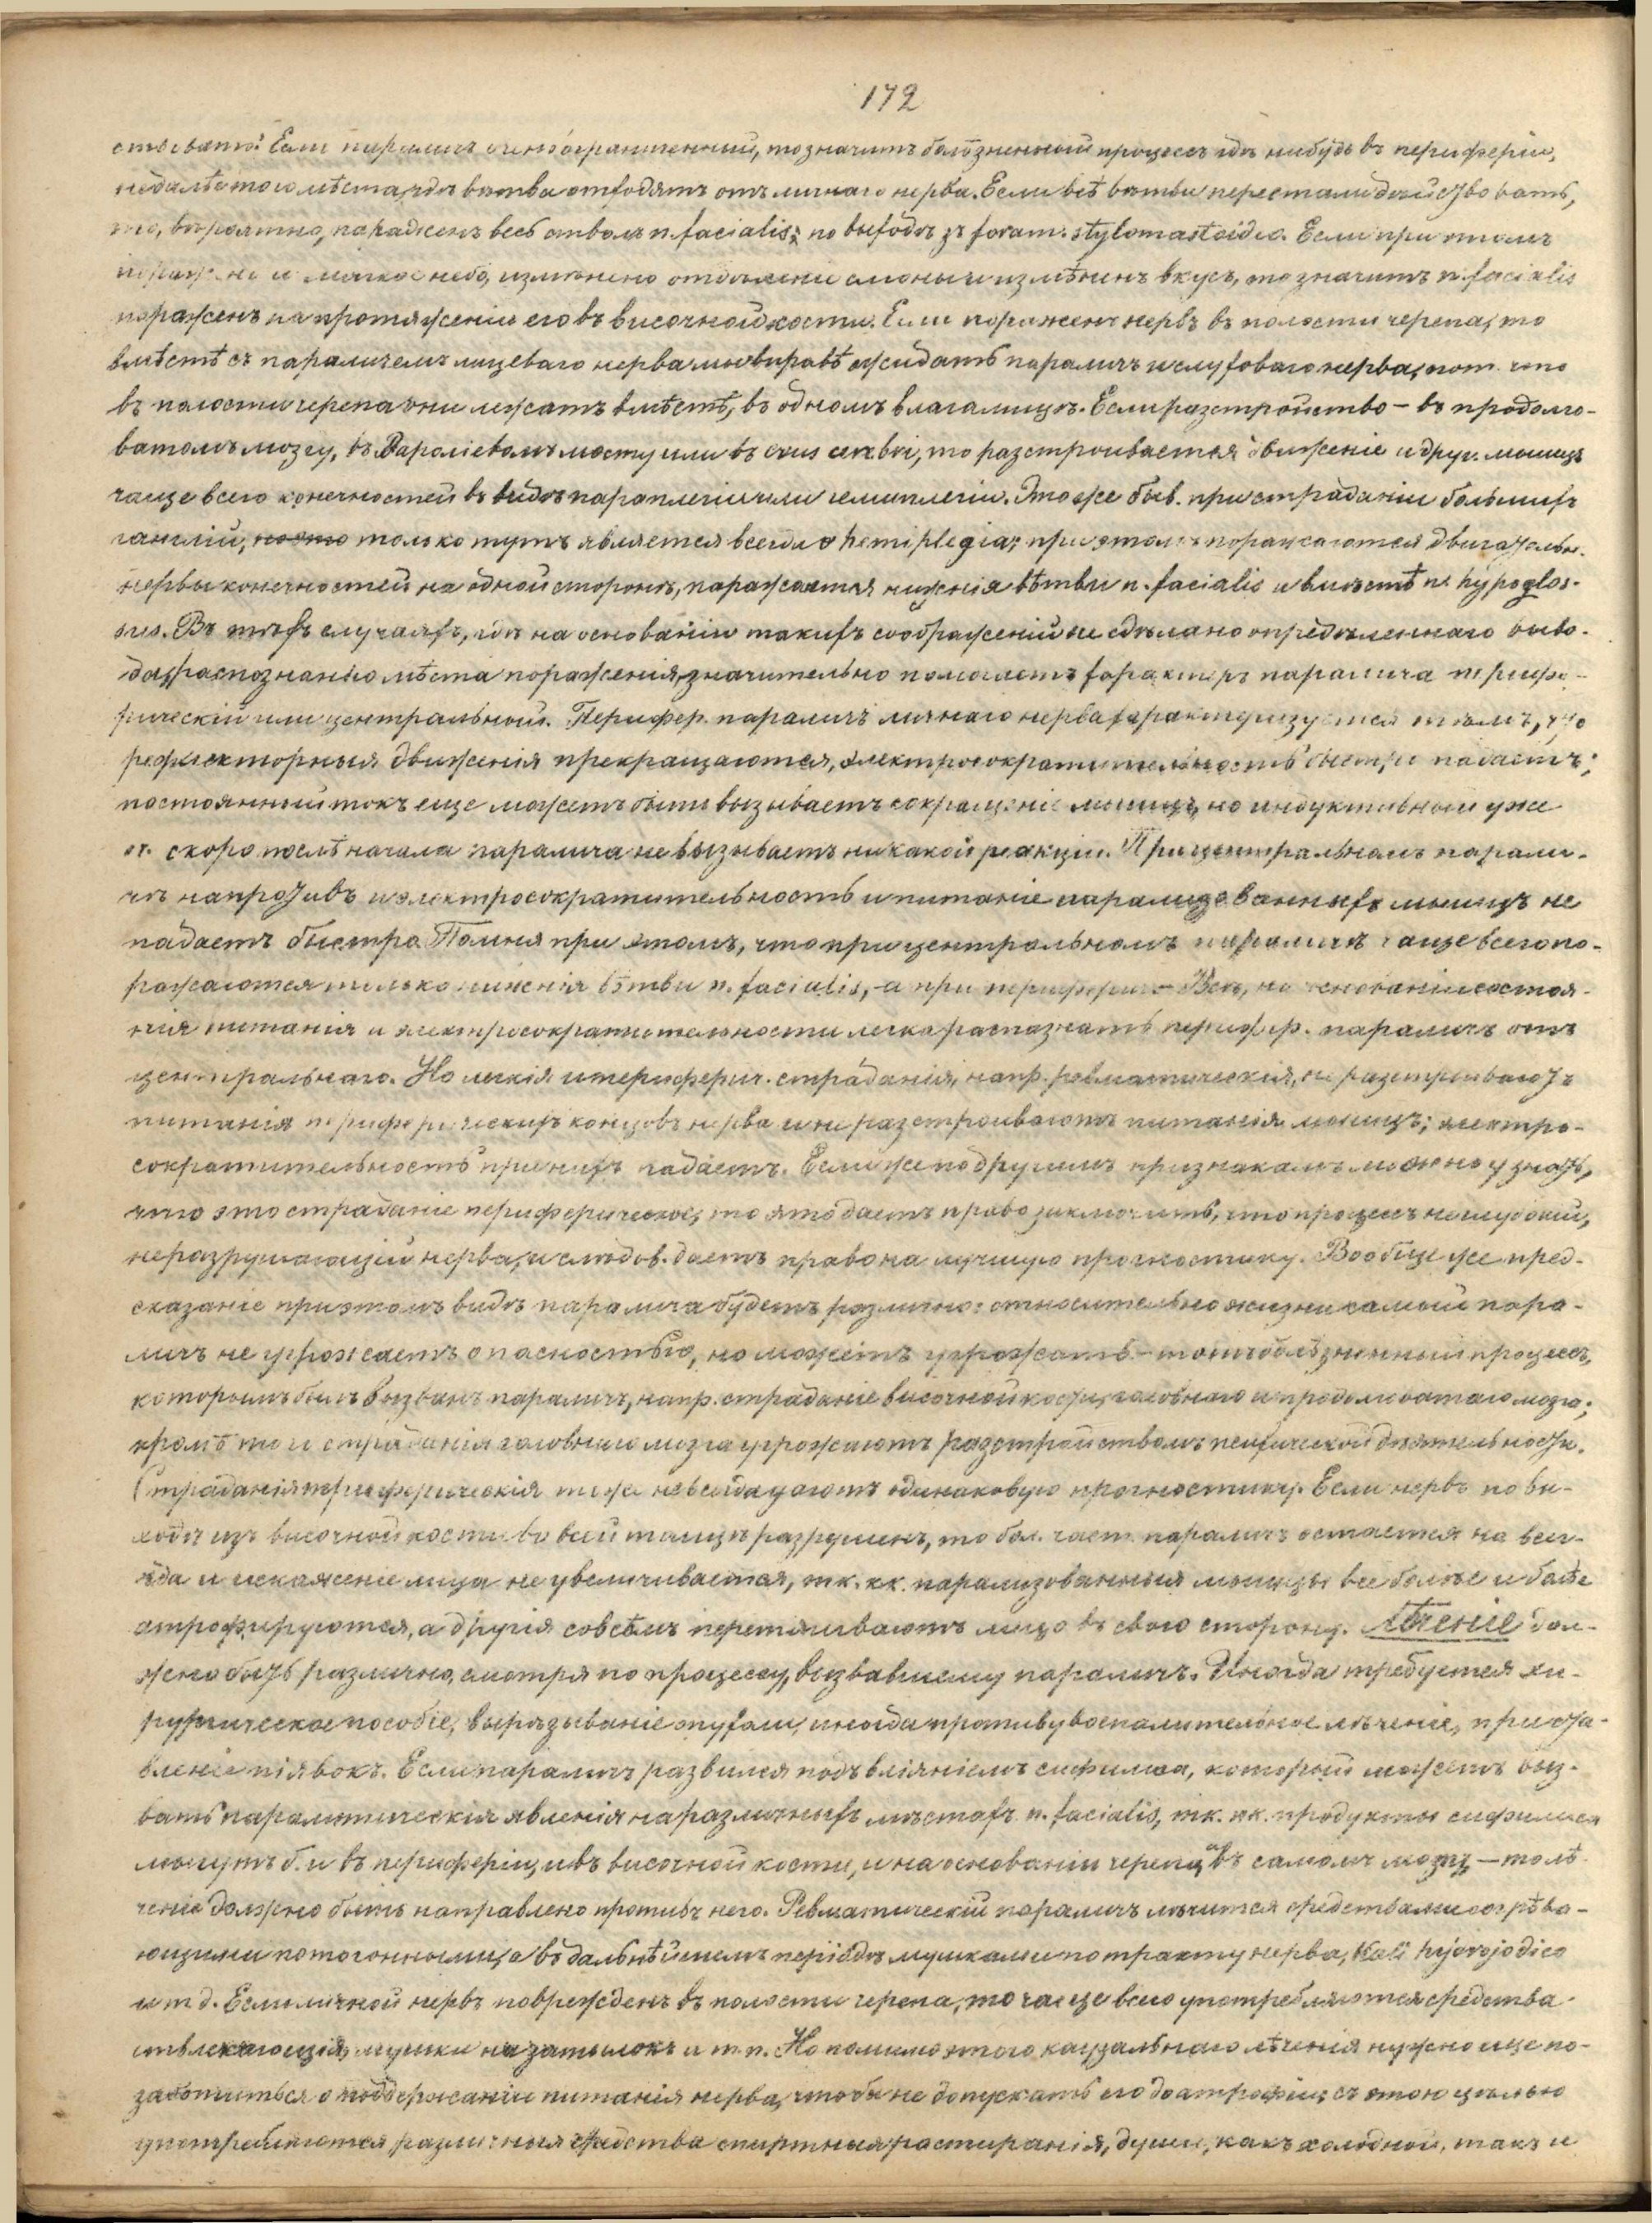 172
ствовать. Если параличъ очень ограниченный, то значитъ болѣзненный процессъ гдѣ нибудь въ периферіи,
недалеко мѣста, гдѣ вѣтви отходятъ отъ личнаго нерва. Если всѣ вѣтви перестали дѣйствовать,
то, вѣроятно, пораженъ весь стволъ n. facialis по выходѣ зъ foram. stylomastoideo. Если при этомъ
и мягкое небо, измѣнено отдѣленіе слюны и измѣненъ вкусъ, то значитъ n. facialis
пораженъ на протяженіи его въ височной кости. Если пораженъ нервъ въ полости черепа, то
вмѣстѣ съ параличемъ лицеваго нерва мы вправѣ ожидать параличъ и слухового нерва, пот. что
въ полости черепа они лежатъ вмѣстѣ, въ одномъ влагалищѣ. Если разстройство – въ продолго-
ватомъ мозгу, въ Вароліевомъ мосту или въ crus cerebri, то разстроивается движеніе и друг. мышцъ
чаще всего конечностей въ видѣ параплегіи или гемиплегіи. Это же быв. при страданіи большихъ
ганглій, только тутъ является всегда hemiplegia; при этомъ поражаются двигательн.
нервы конечностей на одной сторонѣ, поражаются нижнія вѣтви n. facialis и вмѣстѣ n. hypoglos-
sus. Въ тѣхъ случаяхъ, гдѣ на основаніи такихъ соображеній не сдѣлано опредѣленнаго выво-
да, распознанію мѣста пораженія значительно помогаетъ характеръ паралича перифе-
рическій или центральный. Перифер. параличъ личнаго нерва характеризуется тѣмъ, что
рефлекторныя движенія прекращаются, электросократительность быстро падаетъ;
постоянный токъ еще можетъ быть вызываетъ сокращеніе мышцъ, но индуктивный уже
оч. скоро послѣ начала паралича не вызываетъ никакой реакціи. При центральномъ парали-
чѣ напротивъ и электросократительность и питаніе парализованныхъ мышцъ не
падаетъ быстро. Помня при этомъ, что при центральномъ параличѣ чаще всего по-
ражаются только нижнія вѣтви n. facialis, а при периферич – всѣ, на основаніи состоя-
нія питанія и электросократительности легко распознать перифер. параличъ отъ
центральнаго. Но легкія и периферич. страданія, напр. ревматическія, не разстроиваютъ
питанія периферическихъ концовъ нерва и не разстроиваютъ питанія мышцъ; электро-
сократительность при нихъ падаетъ. Если же по другимъ признакамъ можно узнать,
что это страданіе периферическое, то это даетъ право заключить, что процессъ неглубокій,
неразрушающій нерва, и слѣдов. даетъ право на лучшую прогностику. Вообще же пред-
сказаніе при этомъ видѣ паралича будетъ различно: относительно жизни самый пара-
личъ не угрожаетъ опасностью, но можетъ угрожать – тотъ болѣзненный процессъ,
которымъ былъ вызванъ параличъ, напр. страданіе височной кости, головнаго и продолговатаго мозга;
кромѣ того страданія головнаго мозга угрожаютъ разстройствомъ психической дѣятельности.
Страданія периферическія тоже не всегда даютъ одинаковую прогностику. Если нервъ по вы-
ходѣ изъ височной кости во всей толщѣ разрушенъ, то бол. част. параличъ остается на всег-
да и искаженіе лица не увеличивается, тк. кк. парализованныя мышцы все болѣе и болѣе
атрофируются, а другія совсѣмъ перетягиваютъ лицо въ свою сторону. Лѣченіе дол-
жно быть различно, смотря по процессу, вызвавшему параличъ. Иногда требуется хи-
рургическое пособіе, вырѣзываніе опухоли, иногда противувоспалительное лѣченіе, приста-
вленіе піявокъ. Если параличъ развился подъ вліяніемъ сифилиса, который можетъ выз-
вать паралитическія явленія на различныхъ мѣстахъ n. facialis, тк. кк. продукты сифилиса
могутъ б. и въ периферіи, и въ височной кости, и на основаніи черепа, въ самомъ мозгу – то лѣ-
ченіе должно быть направлено противъ него. Ревматическій параличъ лѣчится средствами согрѣва-
ющими потогонными, а въ дальнѣйшемъ періодѣ мушками по тракту нерва, Kali hydrojodico
и т д. Если личной нервъ поврежденъ въ полости черепа, то чаще всего употребляются средства
отвлекающія, мушки на затылокъ и т. п. Но помимо этого каузальнаго лѣченія нужно еще по-
заботиться о поддержаніи питанія нерва, чтобы не допускать его до атрофіи; съ этою цѣлью
употребляются различныя средства спиртныя растиранія, души, какъ холодной, такъ и